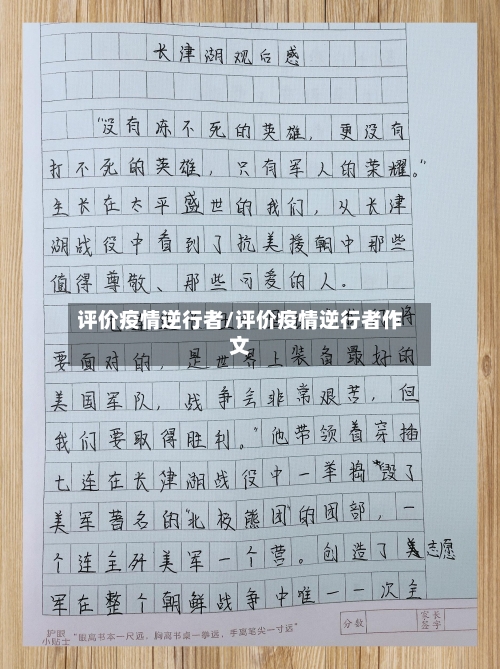 长津湖观后感
"没有冻不死的英雄，更没有
打不死的英雄，只有军人的荣耀。"
生长在太平盛世的我们，从长津
湖战役中看到了抗美援朝中那些
值得尊敬、那些可爱的人。
评价疫情逆行者/评价疫情逆行者作
文
将
要面对的，是世界上装备最好的
美国军队，战争会非常艰苦，但
我们要取得胜利。"他带领着穿插
七连在长津湖战役中一举捣毁了
美军著名的"北极熊团"的团部，一
个连全歼美军一个营。创造了志愿
军在整个朝鲜战争中唯一一次全
护眼
小贴士
"眼离书本一尺远，胸离书桌一拳远，手离笔尖一寸远"
分数
家长
签字